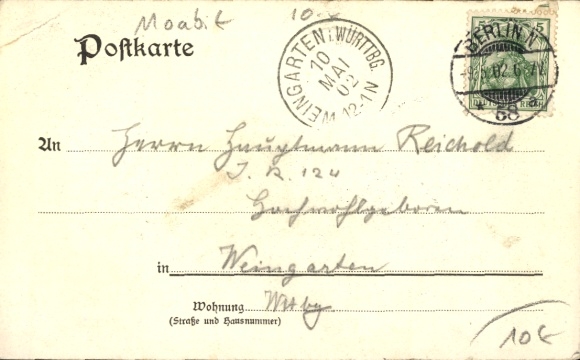 Moabit 10.-
Postkarte
WEINGARTEN i. WÜRTTBG.
10
MAI
02
12-1N
5 5
BERLIN
02. 6-7
DEUTSCHES REICH
An Herrn Hauptmann Reichold
J. R. 124
Hochwohlgeboren
in Weingarten
Wohnung Wttbg
(Straße und Hausnummer)
10€